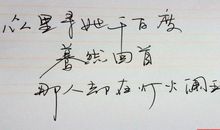 众里寻她千百度
蓦然回首
那人却在灯火阑